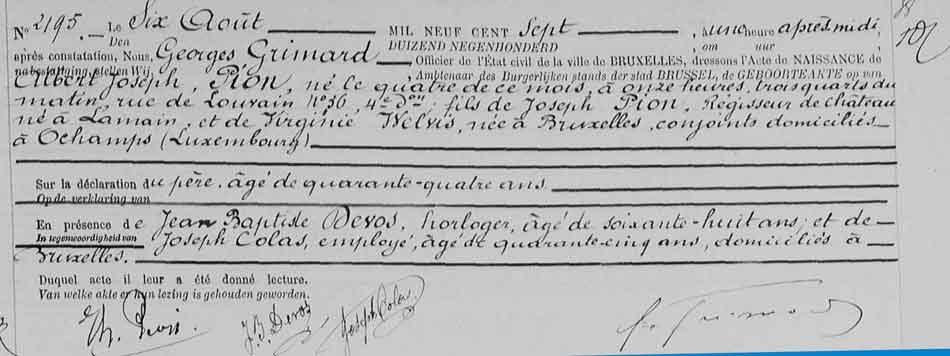 N° 2195. Le Six Août MIL NEUF CENT Sept, à une heure après midi,
Den DUIZEND NEGENHONDERD om uur
après constatation, Nous, Georges Grimard Officier de l'État civil de la ville de BRUXELLES, dressons l'Acte de NAISSANCE de
na bestatiging stellen Wij, Ambtenaar des Burgerlijken stands der stad BRUSSEL, de GEBOORTEAKTE op van
Albert Joseph, Pion, né le quatre de ce mois, à onze heures, trois quarts du
matin, rue de Louvain N° 36, 4e Don; fils de Joseph Pion, Régisseur de château
né à Lamain, et de Virginie Welvis, née à Bruxelles, conjoints domiciliés
à Ochamps (Luxembourg)
Sur la déclaration du père, âgé de quarante-quatre ans
Op de verklaring van
En présence de Jean Baptiste Devos, horloger, âgé de soixante-huit ans; et de
In tegenwoordigheid van Joseph Colas, employé, âgé de quarante-cinq ans, domiciliés à
Bruxelles.
Duquel acte il leur a été donné lecture.
Van welke akte er hun lezing is gehouden geworden.
J. B. Devos Joseph Colas